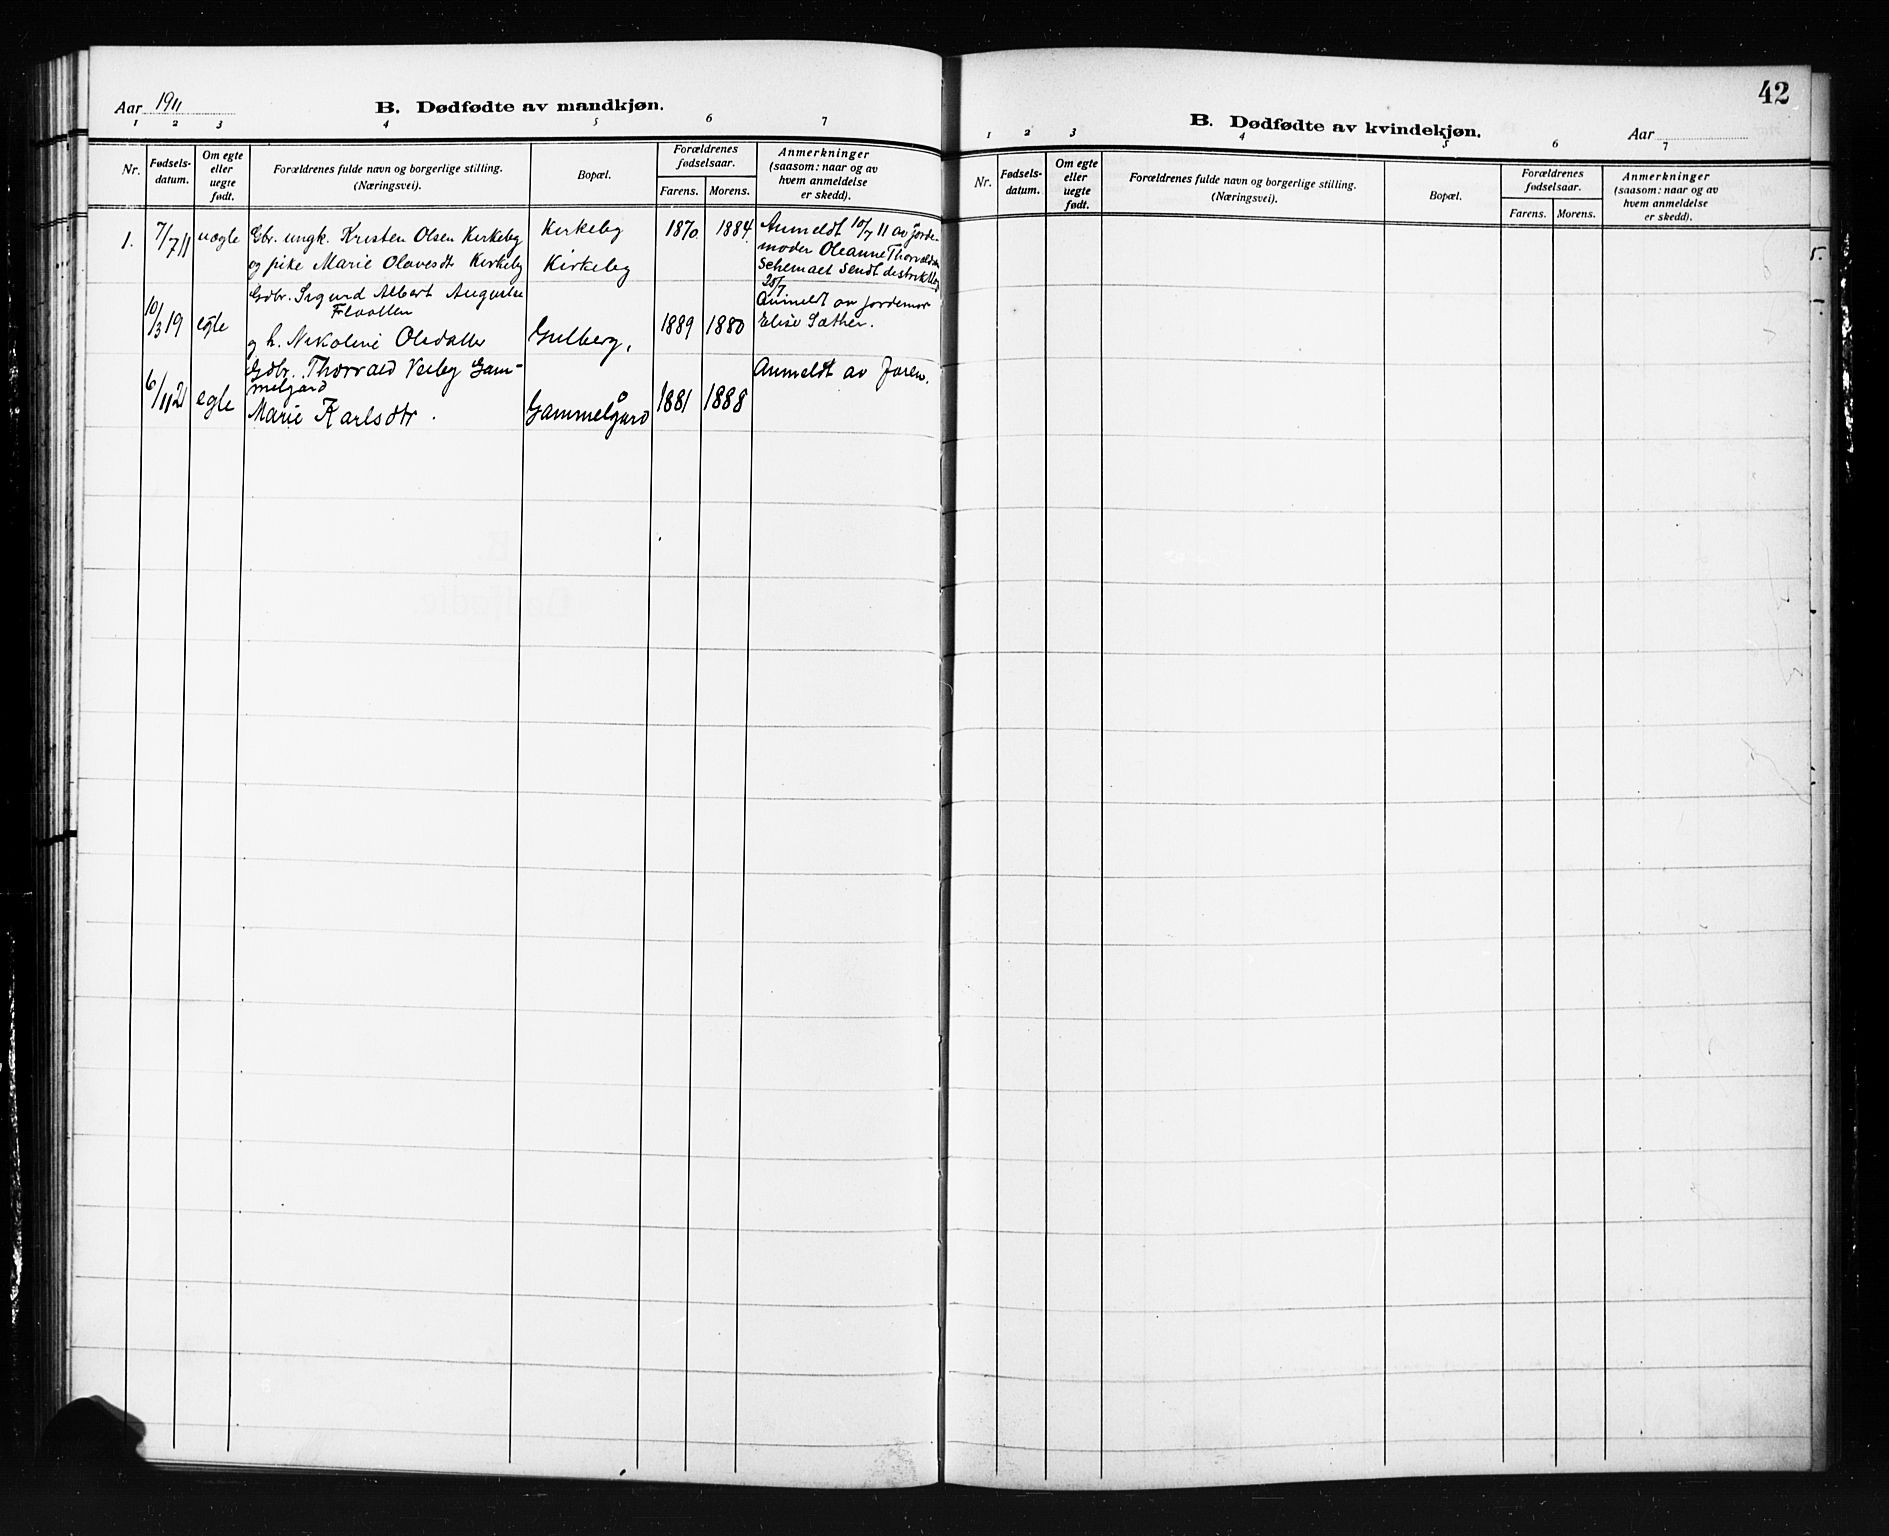 Aar 1911
B. Dødfødte av mandkjøn.
1 2 3 4 5 6 7
Nr.
Fødsels-
datum.
Om egte
eller
uegte
født.
Forældrenes fulde navn og borgerlige stilling.
(Næringsvei).
Bopæl.
Forældrenes
fødselsaar.
Farens. Morens.
Anmerkninger
(saasom: naar og av
hvem anmeldelse
er skedd).
1. 7/7 11 uegte Gbr. ungk. Kristen Olsen Kirkeby Kirkeby 1870. 1884. Anmeldt 10/7 11 av Jorde-
og pike Marie Olavesdt Kirkeby Kirkeby moder Oleanne
Schemaet sendt
28/7
10/3 19 egte Gdbr. Sigurd Albert August
og h. Nikoline Olsdatter Gulberg, 1889 1880 Anmeldt av Jordemor
Elise Sæther.
6/11 21 egte Gdbr. Thorvald Veiby Gam-
melgård
Marie Karlsdtr. Gammelgård 1881 1888 Anmeldt av faren.
42
B. Dødfødte av kvindekjøn.
Aar
1 2 3 4 5 6 7
Nr.
Fødsels-
datum.
Om egte
eller
uegte
født.
Forældrenes fulde navn og borgerlige stilling.
(Næringsvei).
Bopæl.
Forældrenes
fødselsaar.
Farens. Morens.
Anmerkninger
(saasom: naar og av
hvem anmeldelse
er skedd).